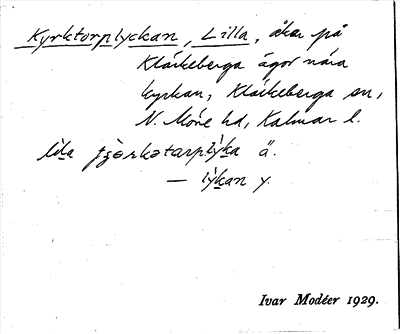 Kyrktorplyckan, Lilla, åker på
Kläckeberga ägor nära
kyrkan, Kläckeberga sn,
N. Möre hd, Kalmar l.
lila çỳrkətårplỳka ä.
— lỳkan y.
Ivar Modéer 1929.